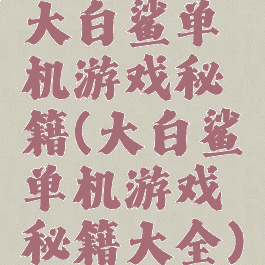 大白鲨单
机游戏秘
籍(大白鲨
单机游戏
秘籍大全)